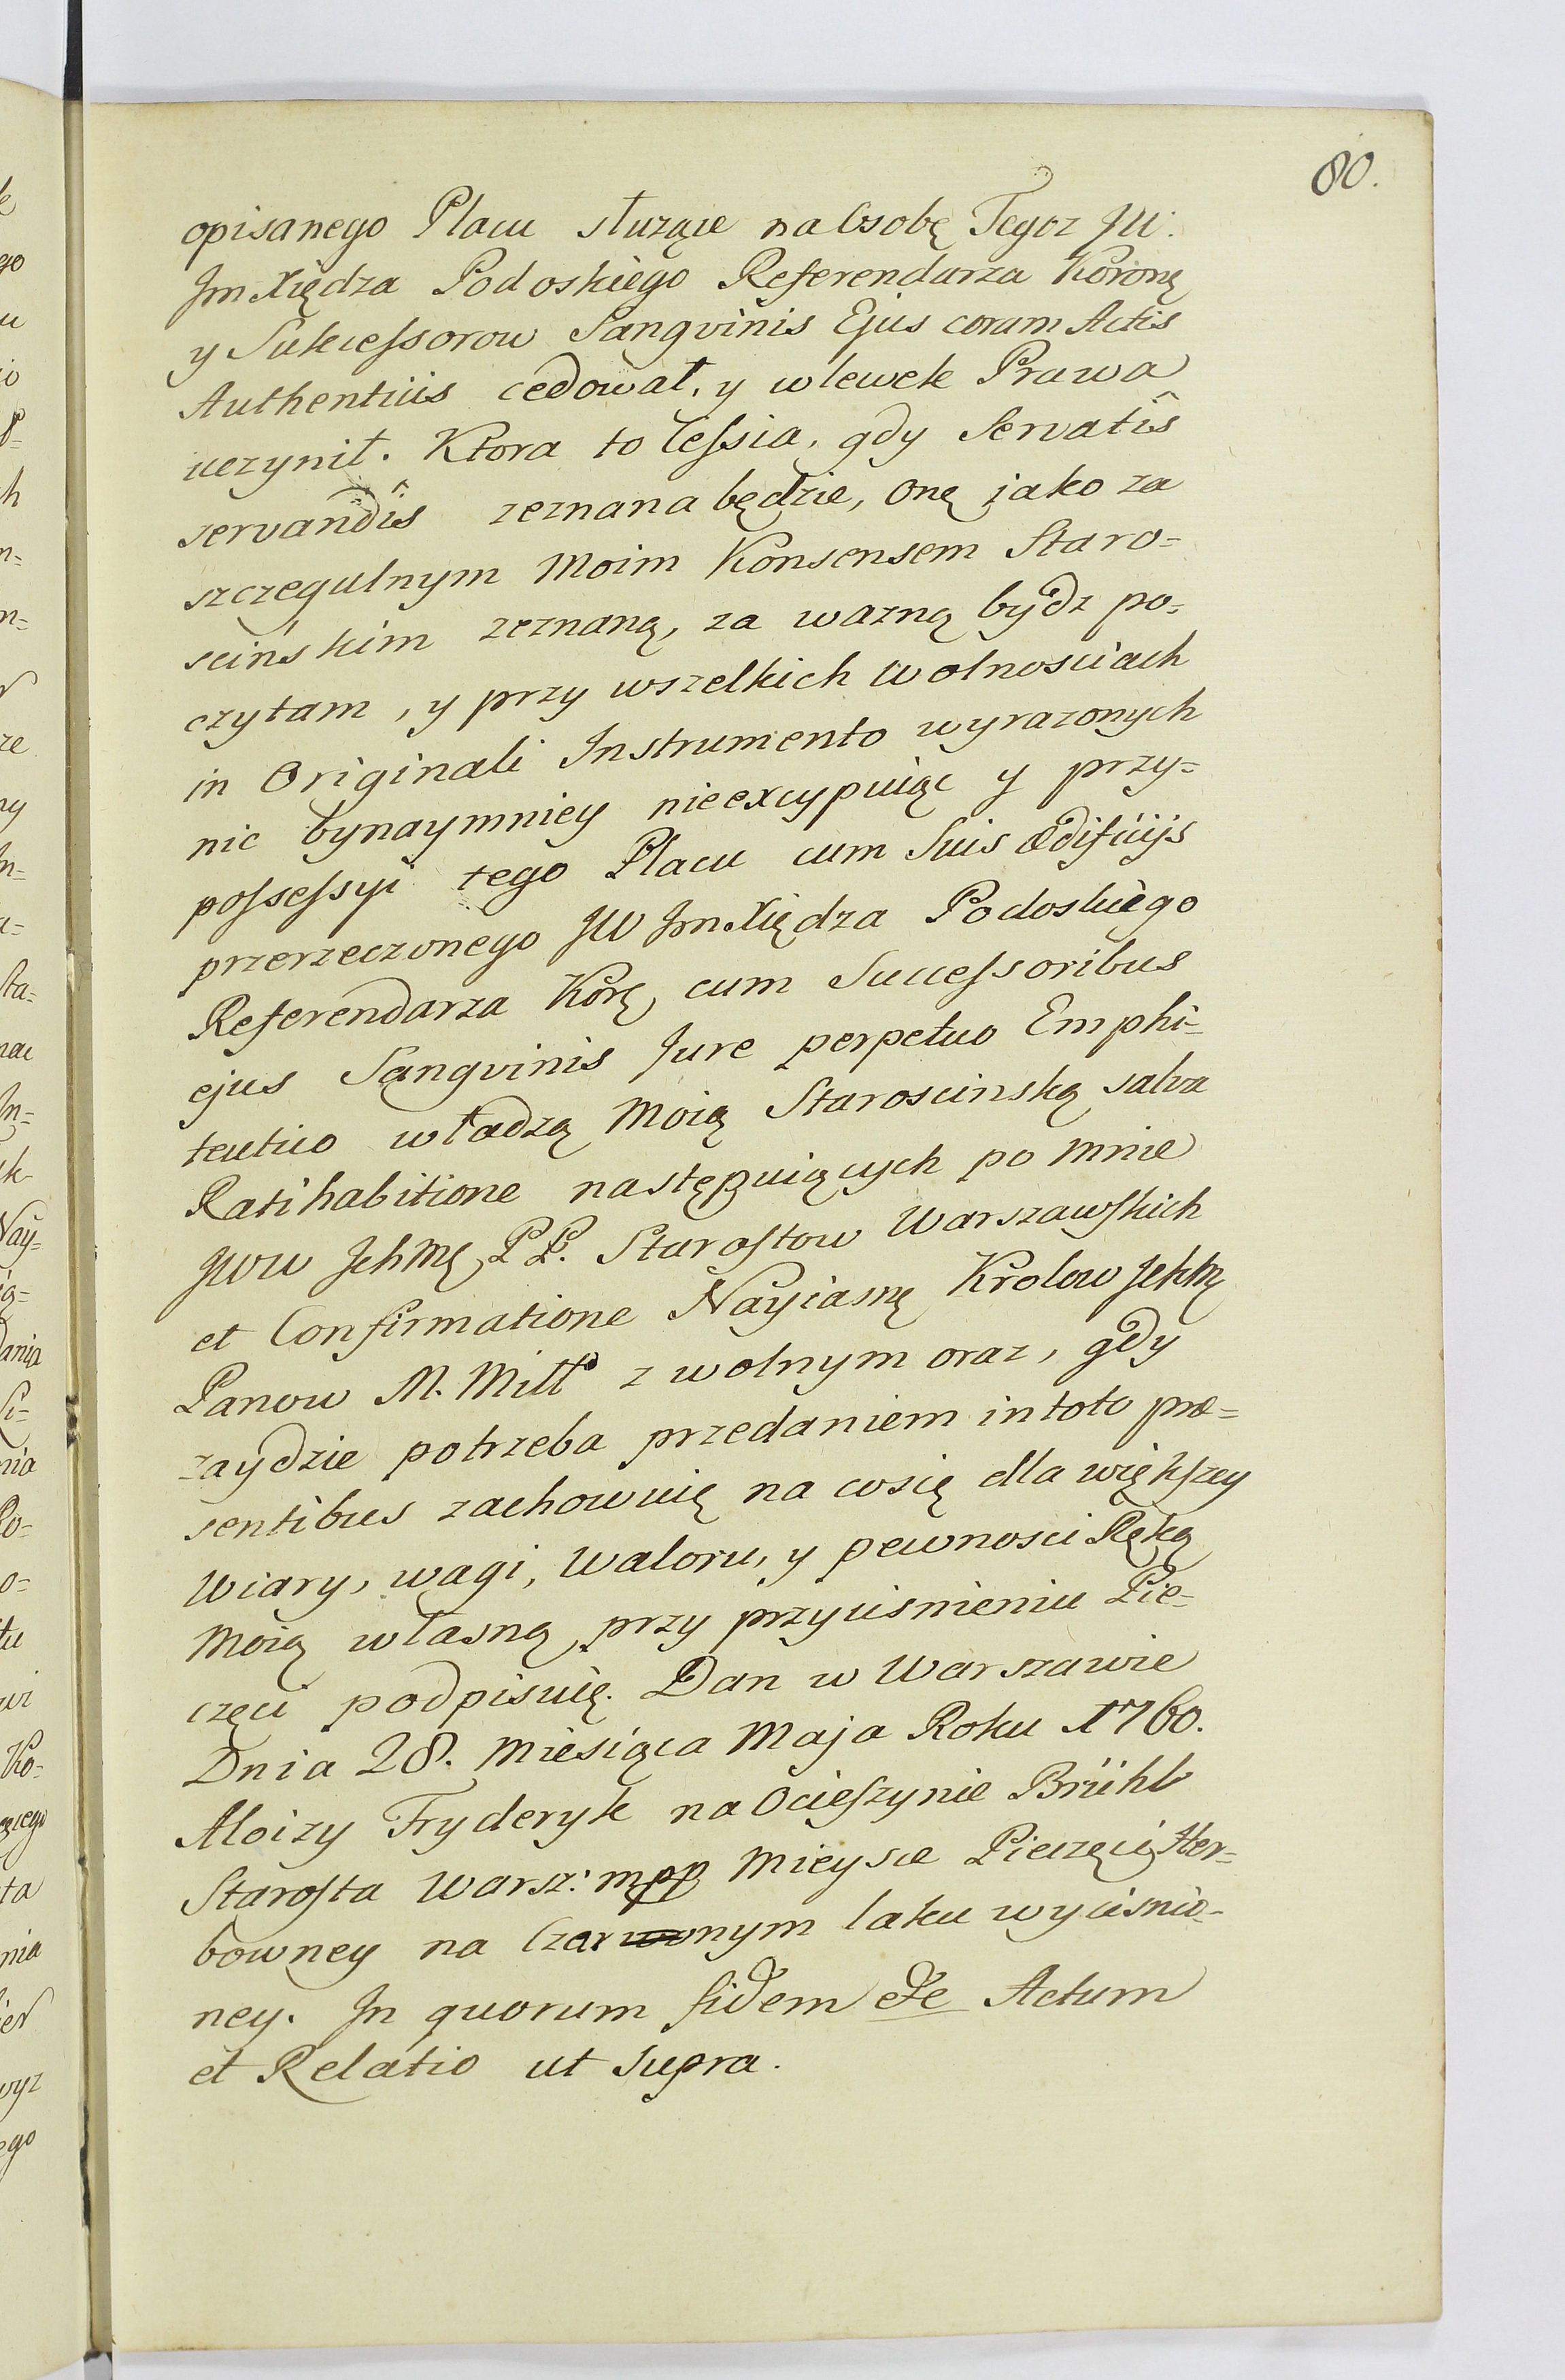 80.
opisanego Placu słuzące na Osobę Tegoz JW.
Jm Xiędza Podoskiego Referendarza Koronę
y Sukcessorow Sangvinis Ejus coram Actis
Authenticis cedował, y wlewek Prawa
uczynił. Ktora to Cessia, gdy Servatîs
servandîs zeznana będzie, onę jako za
szczegulnym Moim Konsensem Staro=
scińskim zeznaną, za wazną bydz po=
czytam, y przy wszelkich Wolnosciach
in Originali Instrumento wyrazonych
nic bynaymniey nieexcypuiąc y przy=
possessyi tego Placu cum Suis ædificijs
przerzeczonego JW JmXiędza Podoskiego
Referendarza Korę, cum Successoribus
ejus Sangvinis Jure perpetuo Emphi=
teutico władzą Moią Staroscinską salva
Ratihabitione następuiących po Mnie
JWW JchMę PP. Starostow Warszawskich
et Confirmatione Nayiasnę Krolow JchMę
Panow M. Mill° z wolnym oraz, gdy
zaydzie potrzeba przedaniem in toto præ=
sentibus zachowuię na cosię dla większey
Wiary, wagi, Waloru, y pewnosci Ręką
Moią własną przy przycisnieniu Pie=
częci podpisuię. Dan w Warszawie
Dnia 28. Miesiąca Maja Roku 1760.
Aloizy Fryderyk na Ocieszynie Brühl
Starosta Warsz: mpp Mieysce Pieczęci Her=
bowney na Czarwonym laku wycisnio=
ney. In quorum fidem etc Actum
et Relatio ut supra.